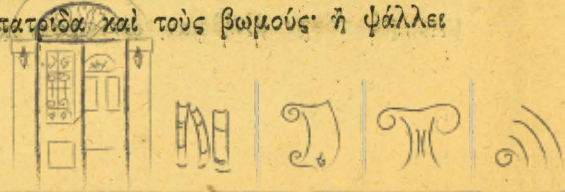 πατρίδα καὶ τοὺς βωμούς· ἢ ψάλλει